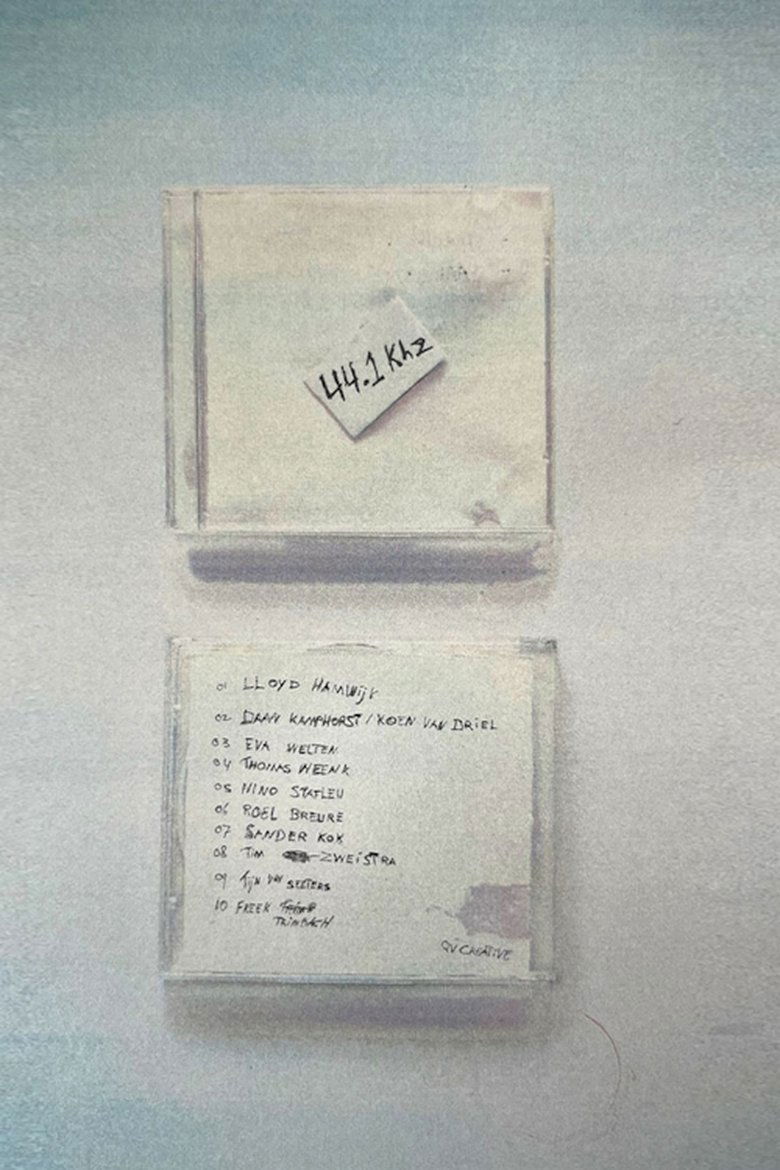 44.1 Khz
01 LLOYD HAMWijk
02 DAAN KAMPHORST / KOEN VAN DRiEL
03 EVA WELTEN
04 THOMAS WEENK
05 NINO STATLEU
06 ROEL BREURE
07 SANDER KOK
08 TiM ZWEiSTRA
09 Tijn VAN SEETERS
10 FREEK
TRIMBACH
QV CREATIVE